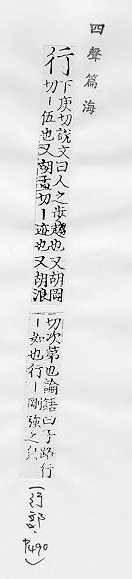 四聲篇海
行
下庚切說文曰人之步趨也又胡岡
切丨伍也又胡孟切丨迹也又胡浪
切次第也論語曰子路行
丨如也行丨剛強之
(行部.
P490)